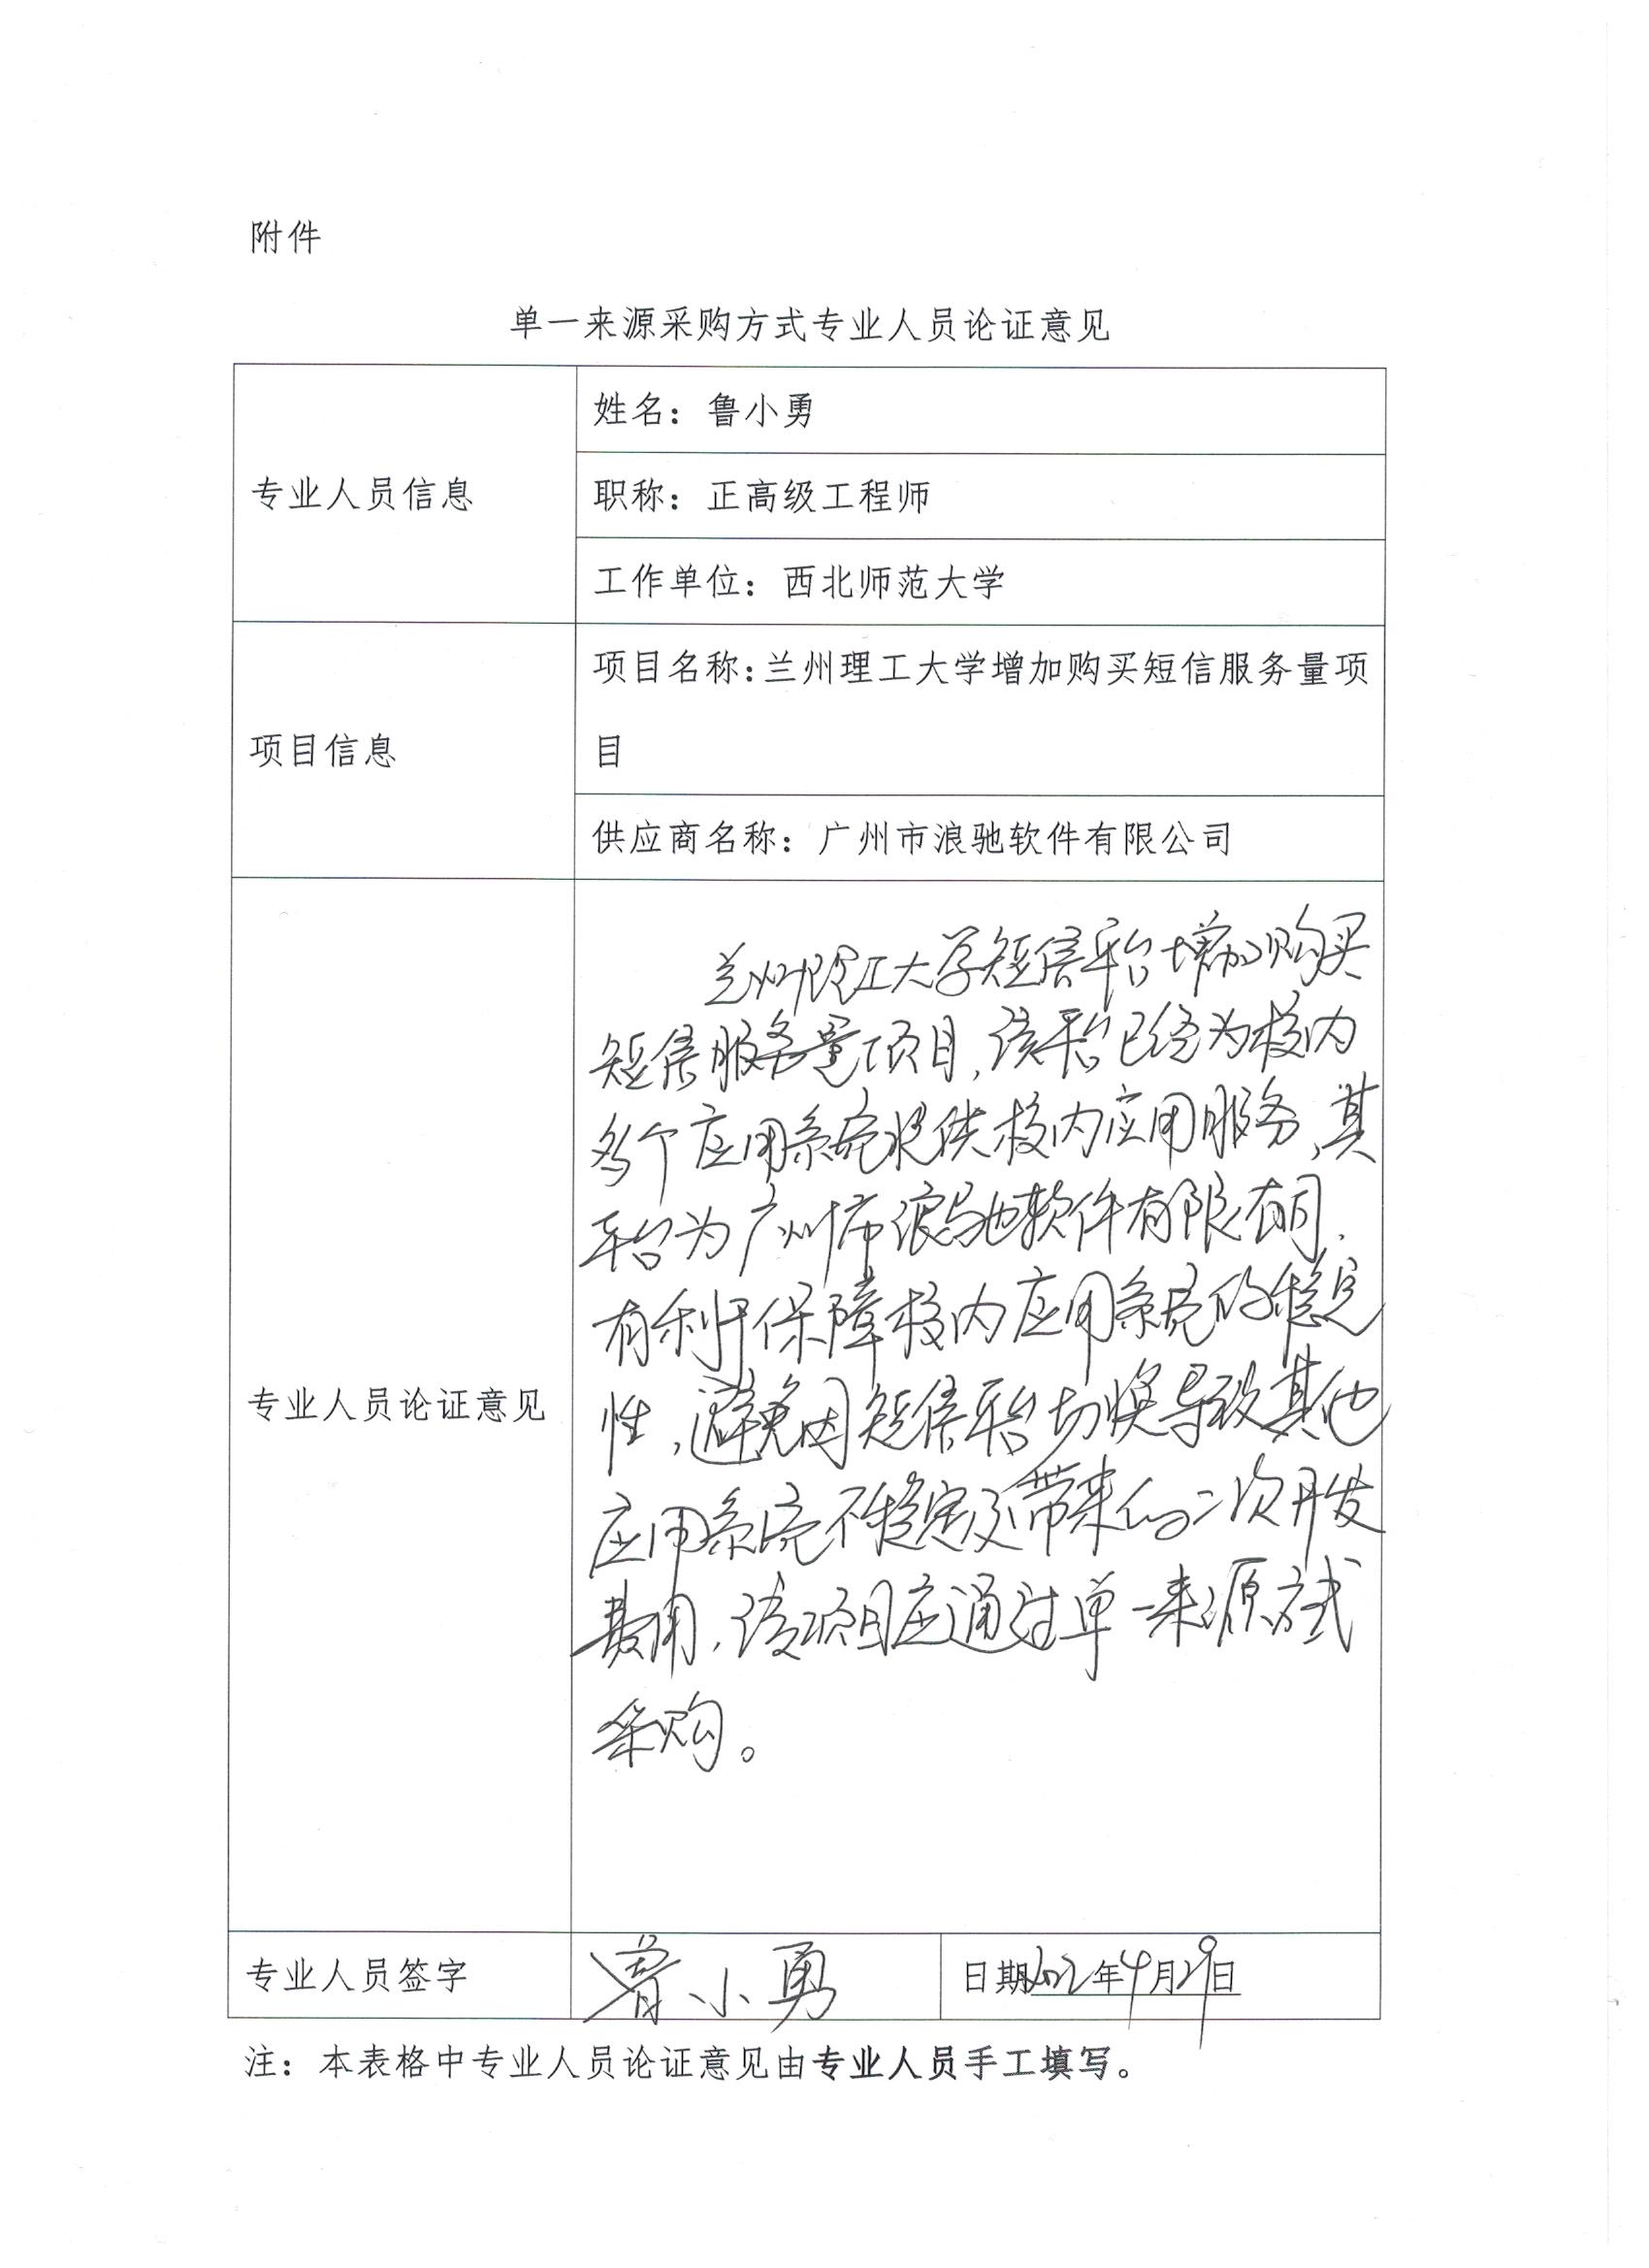 附件
单一来源采购方式专业人员论证意见
专业人员信息
姓名：鲁小勇
职称：正高级工程师
工作单位：西北师范大学
项目信息
项目名称：兰州理工大学增加购买短信服务量项
目
供应商名称：广州市浪驰软件有限公司
专业人员论证意见
兰州理工大学短信平台增加购买
短信服务量项目，该平台已经为校内
多个应用系统提供校内应用服务，其
平台为广州市浪驰软件有限
有利于保障校内应用系统的稳定
性，避免因短信平台切换导致其他
应用系统不稳定及带来的二次开发
费用，该项目应通过单一来源方式
采购。
专业人员签字
鲁小勇
日期2022年4月29日
注：本表格中专业人员论证意见由专业人员手工填写。